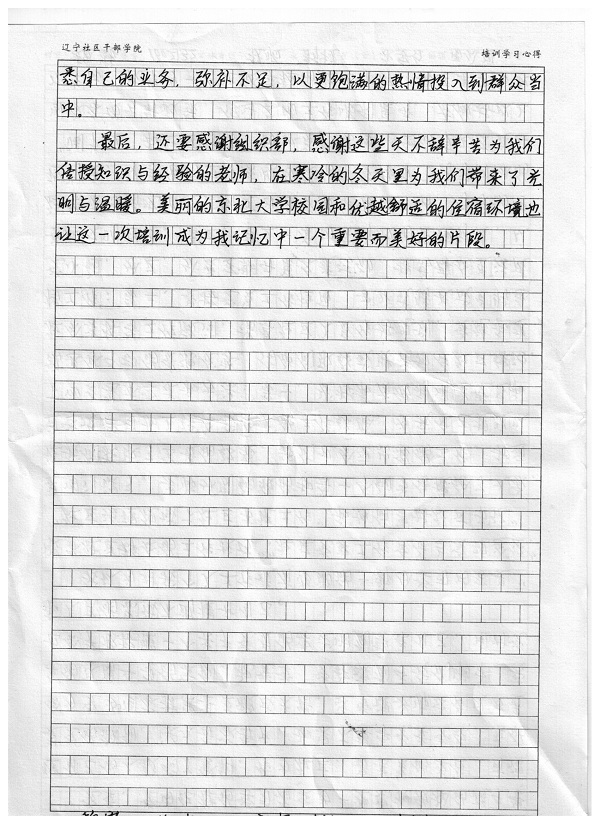 辽宁社区干部学院
培训学习心得
悉自己的业务，弥补不足，以更饱满的热情投入到群众当
中。
最后，还要感谢组织部，感谢这些天不辞辛苦为我们
传授知识与经验的老师，在寒冷的冬天里为我们带来了光
明与温暖。美丽的东北大学校园和优越舒适的住宿环境也
让这一次培训成为我记忆中一个重要而美好的片段。